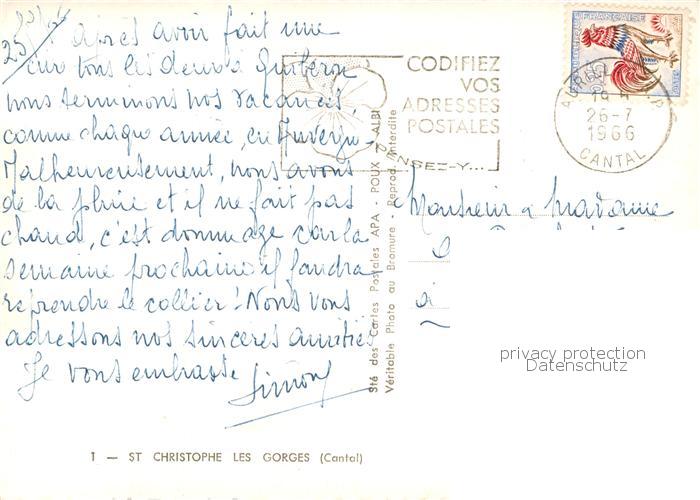 25/7/66
après avoir fait une
cure tous les deux à Quiberon
nous terminons nos vacances,
comme chaque année, en Auvergne
Malheureusement, nous avons
de la pluie et il ne fait pas
chaud, c'est dommage car la
semaine prochaine il faudra
reprendre le collier! Nous vous
adressons nos sincères amitiés
Je vous embrasse Simone
1 — ST CHRISTOPHE LES GORGES (Cantal)
Sté des Cartes Postales APA - POUX - ALBI
Véritable Photo au Bromure - Reprod. Interdite
CODIFIEZ
VOS
ADRESSES
POSTALES
PENSEZ-Y...
REPUBLIQUE FRANÇAISE
26-7
1966
CANTAL
Monsieur & Madame
à
privacy protection
Datenschutz